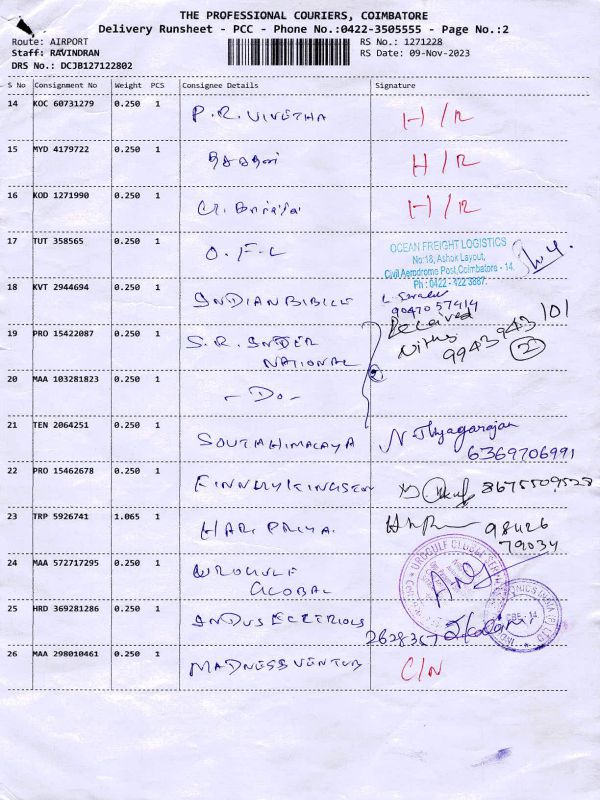 THE PROFESSIONAL COURIERS, COIMBATORE
Delivery Runsheet - PCC - Phone No.:0422-3505555 - Page No.:2
Route: AIRPORT RS No.: 1271228
Staff: RAVINDRAN RS Date: 09-Nov-2023
DRS No.: DCJB127122802
S No Consignment No Weight PCS Consignee Details Signature
14 KOC 60731279 0.250 1 P.R. VINETHA H/R
15 MYD 4179722 0.250 1 H/R
16 KOD 1271990 0.250 1 H/R
17 TUT 358565 0.250 1 O.F.L
OCEAN FREIGHT LOGISTICS
No:18, Ashok Layout,
Civil Aerodrome Post, Coimbatore - 14.
Ph : 0422 - 422 3887.
18 KVT 2944694 0.250 1 INDIAN BIBILE
9047057414
Received
19 PRO 15422087 0.250 1 S.R. INTER
NATIONAL
9943943101
2
20 MAA 103281823 0.250 1 - Do -
21 TEN 2064251 0.250 1 SOUTH HIMALAYA N. Thyagarajan
6369706991
22 PRO 15462678 0.250 1 FINNY KINGSTON 8675509528
23 TRP 5926741 1.065 1 HARI PRIYA.
98426
79034
24 MAA 572717295 0.250 1 UROGULF
GLOBAL
25 HRD 369281286 0.250 1 INDUS ELCTRIOLS 2628367
26 MAA 298010461 0.250 1 MADNESS VENTUB C/N